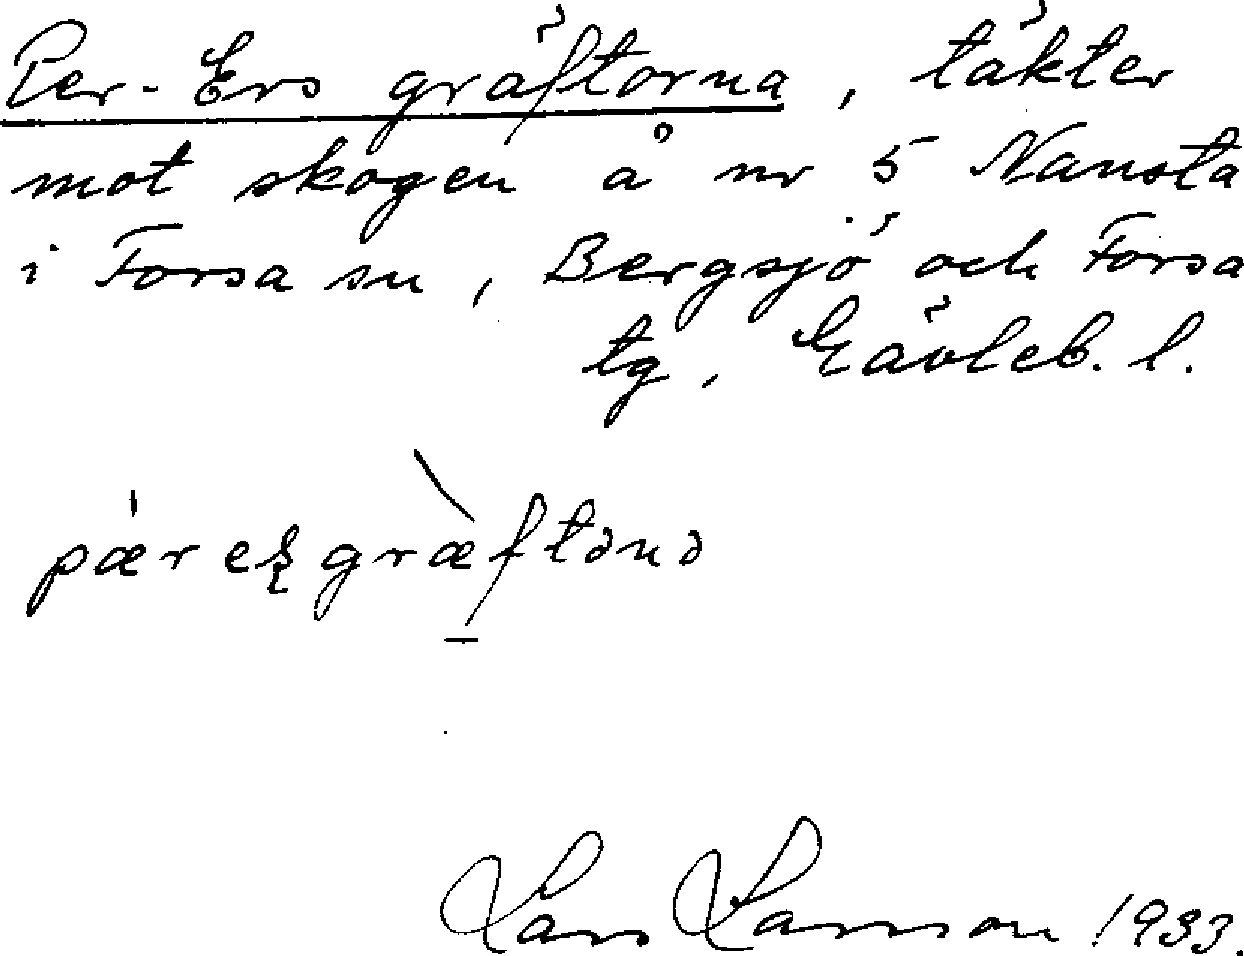 Per-Ers gräftorna, täkter
mot skogen å nr 5 Nansta
i Forsa sn, Bergsjö och Forsa
tg, Gävleb. l.
pær eʂ græftənə
Lars Larsson 1933.